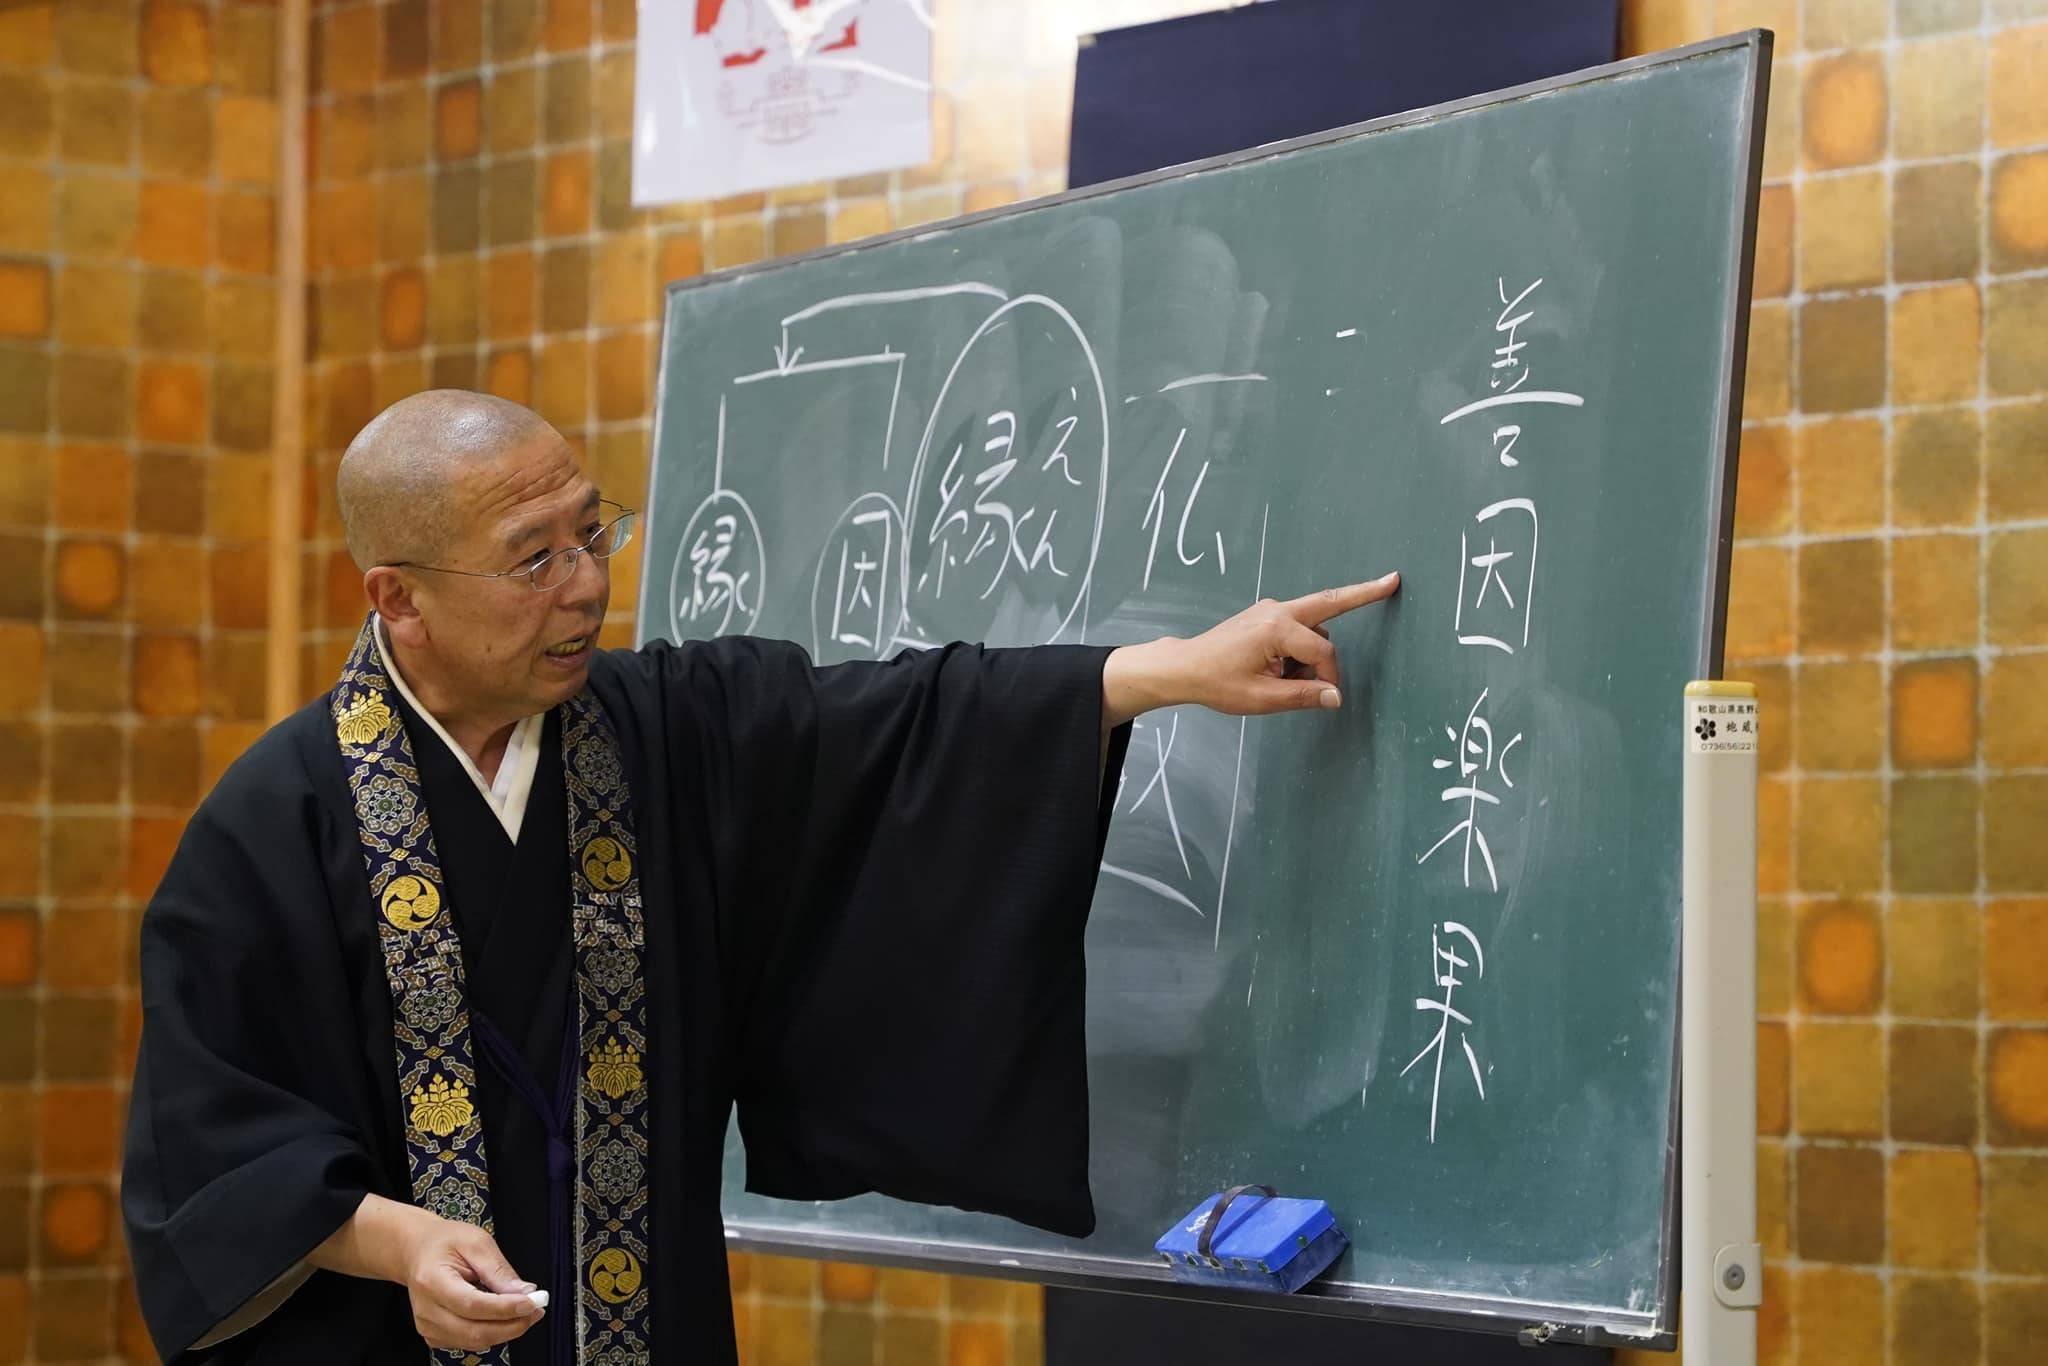 善因楽果
仏
縁
えん
因
縁
和歌山県高野
地蔵
0736(56)221